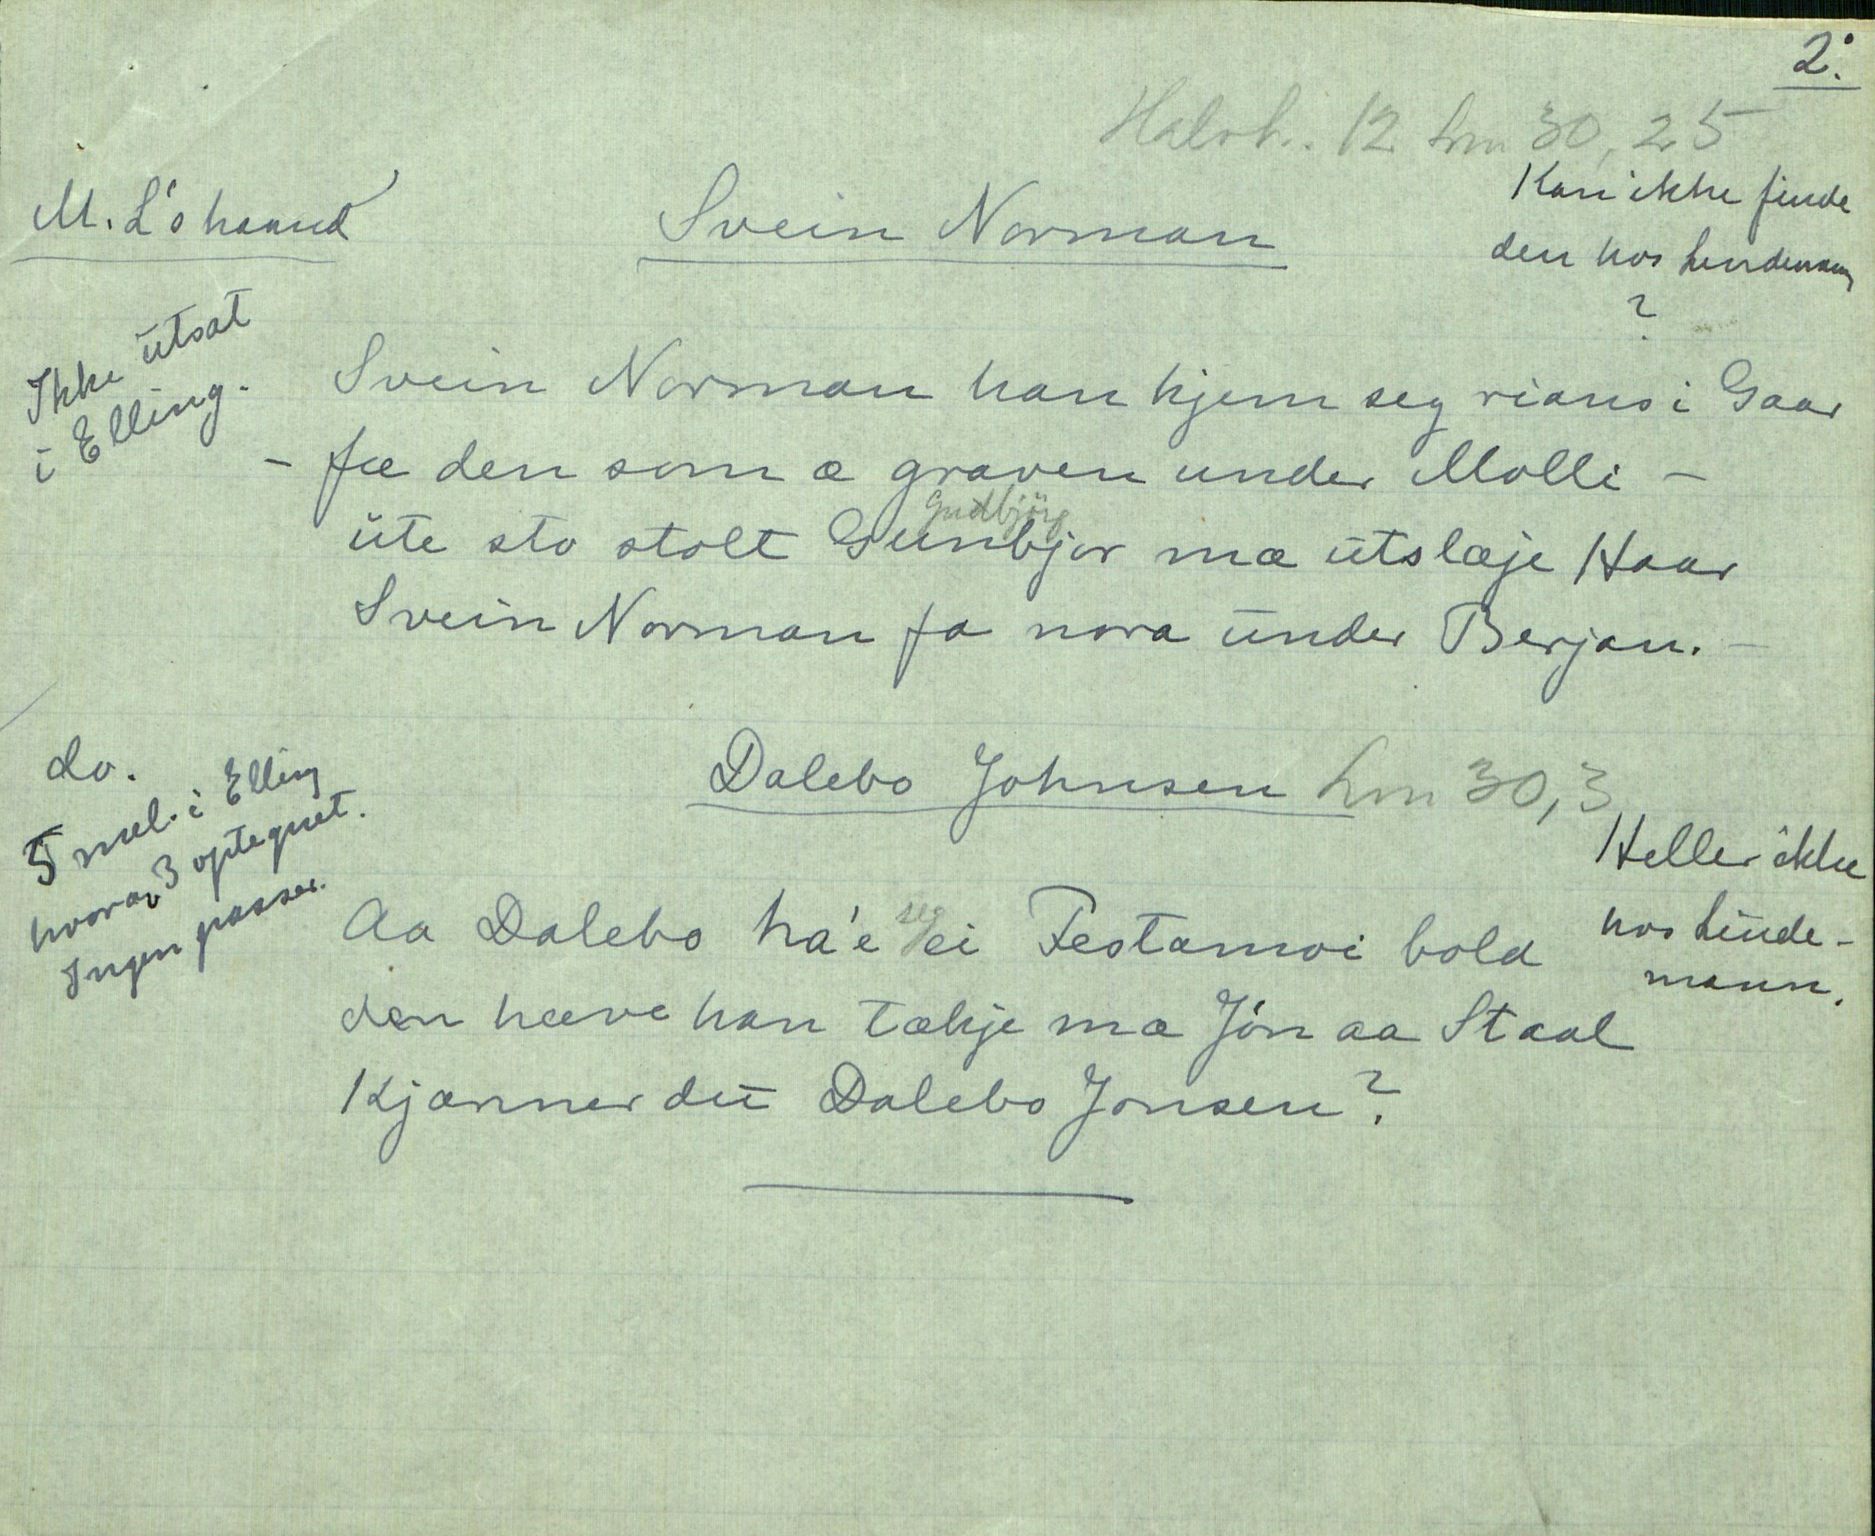 2.
Halvh. 12 Lm 30, 25
M. L's haand
Svein Norman
Kan ikke finde
den hos Lindeman
?
Ikke utsat
i Elling.
Svein Norman han kjem seg rians i Gaar
- fæ den som æ graven under Molli -
ute sto stolt Gunbjør mæ utslæje Haar
Gudbjörg
Svein Norman fa nora under Berjan. -
do.
5 mel. i Elling
hvorav 3 optegnet.
Ingen passer.
Dalebo Johnsen Lm 30, 3
Heller ikke
hos Linde-
mann.
Aa Dalebo ha'e seg ei Festamoi bold
den hæve han tækje mæ Jón aa Staal
Kjænner du Dalebo Jonsen?